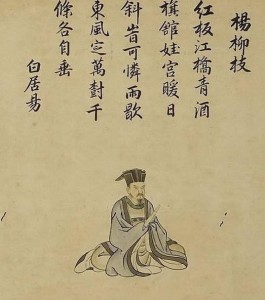 楊柳枝
紅板江橋青酒
旗館娃宮暖日
斜旹可憐雨歇
東風定萬樹千
條各自垂
白居易